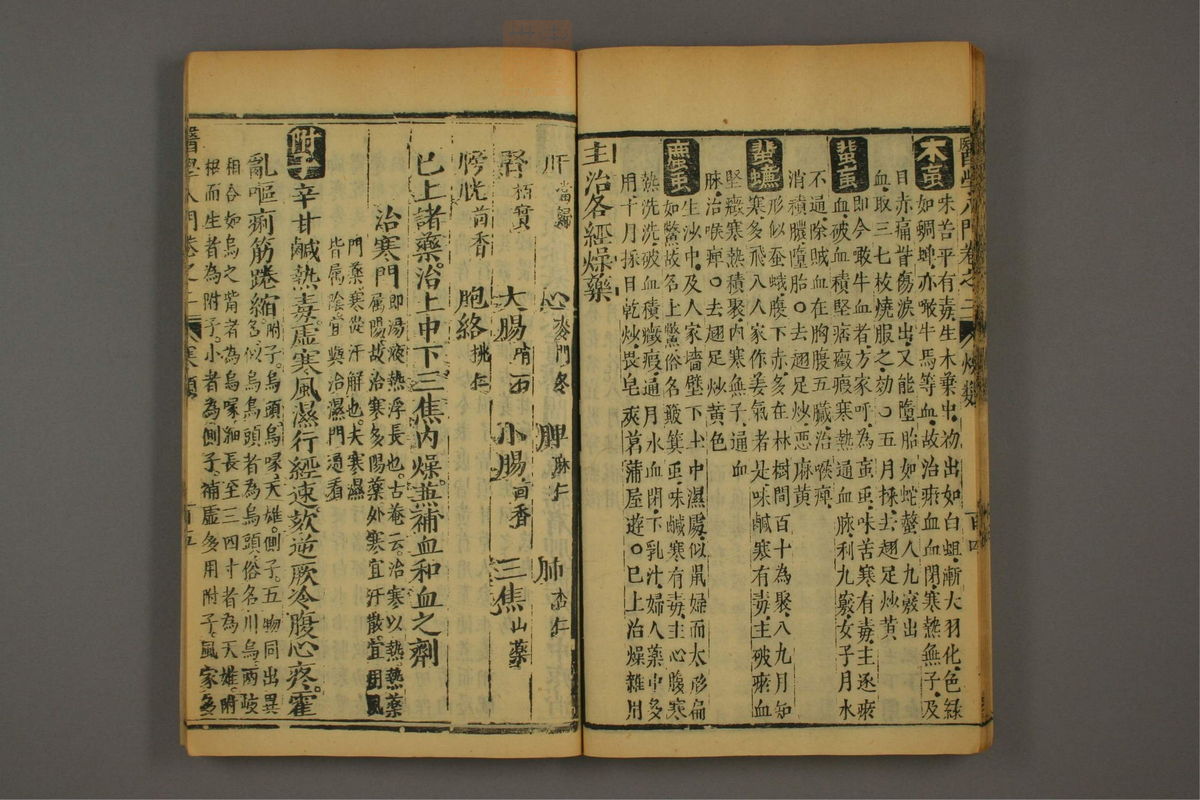 醫學入門卷之二 燥類 百四
木䖟
味苦平有毒生木葉中初出如白蛆漸大羽化色綠
如蜩蟬亦噉牛馬等血故治瘀血血閉寒熱無子及
目赤痛眥傷淚出又能墮胎如蛇螫人九竅出
血取三七枚燒服之効○五月採去翅足炒黃
蜚䖟
即今敢牛血者方家呼為䖟䖟味苦寒有毒主逐瘀
血破血積堅痞癥瘕寒熱通血脉利九竅女子月水
不通除賊血在胸腹五臟治喉痺
消積膿墮胎○去翅足炒惡麻黃
蜚蠊
形似蚕蛾腹下赤多在林樹間百十為聚八九月知
寒多飛入人家作姜氣者是味鹹寒有毒主破瘀血
堅癥寒熱積聚內寒無子通血
脉治喉痺○去翅足炒黃色
䗪䖟
生沙中及人家墻壁下土中濕處似鼠婦而大形扁
如鱉故名土鱉俗名簸箕䖟味鹹寒有毒主心腹寒
熱洗洗破血積癥瘕通月水血閉下乳汁婦人藥中多
用十月採日乾炒畏皂莢菖蒲屋遊○已上治燥雜用
主治各經燥藥
肝當歸 心麥門冬 脾麻仁 肺杏仁
腎栢實 大腸硝石 小腸茴香 三焦山藥
膀胱茴香 胞絡桃仁
已上諸藥治上中下三焦內燥並補血和血之劑
治寒門
即湯液熱浮長也古菴云治寒以熱熱藥
屬陽故治寒多陽藥外寒宜汗散宜用風
門藥寒從汗解也大寒濕
皆屬陰宜與治濕門通看
附子
辛甘鹹熱毒虛寒風濕行經速欬逆厥冷腹心疼霍
亂嘔痢筋踡縮
附子烏頭烏喙天雄側子五物同出異
名似烏烏頭者為烏頭俗名川烏兩歧
相合如烏之觜者為烏喙細長至三四寸者為天雄附
根而生者為附子小者為側子補虛多用附子風家多
醫學入門卷之二 寒類 百五